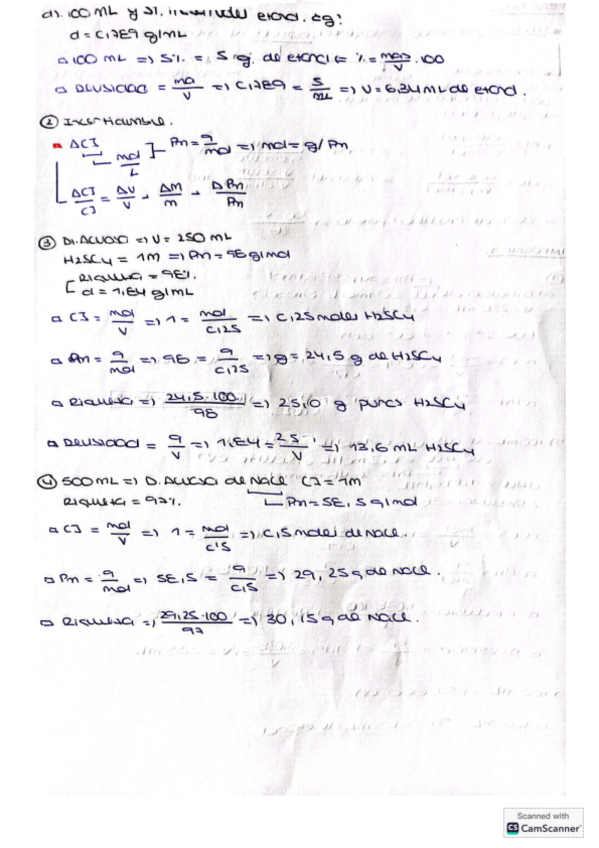 d). 100 mL y 5%. etanol. ¿g?
d = 0,789 g/mL
100 mL => 5% = 5 g. de etanol => % = maso/V . 100
Densidad = ma/V => 0,789 = 5/mL => V = 6,34 mL de etanol.
②
Δ[C] mol/L ] Pm = g/mol => mol = g/Pm
Δ[C]/[C] = ΔV/V . Δm/m . ΔPm/Pm
③ D. Acuosa => V = 250 mL
H2SO4 = 1M => Pm = 98 g/mol
[ Riqueza = 98%.
d = 1,84 g/mL
[C] = mol/V => 1 = mol/0,25 => 0,25 moles H2SO4
Pm = g/mol => 98 = g/0,25 => g = 24,5 g de H2SO4
Riqueza => 24,5.100/98 => 25,0 g puros H2SO4
Densidad = g/V => 1,84 = 25/V => 13,6 mL H2SO4
④ 500 mL => D. Acuosa de NaCl [C] = 1M
Riqueza = 97%. Pm = 58,5 g/mol
[C] = mol/V => 1 = mol/0'5 => 0,5 moles de NaCl.
Pm = g/mol => 58,5 = g/0,5 => 29,25 g de NaCl.
Riqueza => 29,25.100/97 => 30,15 g de NaCl.
Scanned with
CS CamScanner